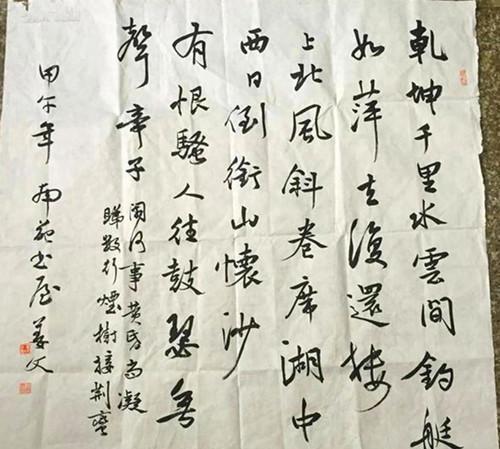 乾坤千里水雲間釣艇
如萍去復還樓
上北風斜卷席湖中
西日倒銜山懷沙
有恨騷人往鼓瑟无
聲帝子閑何事黃昏尚凝
睇數行煙樹接荊蠻
甲午年南苑书屋